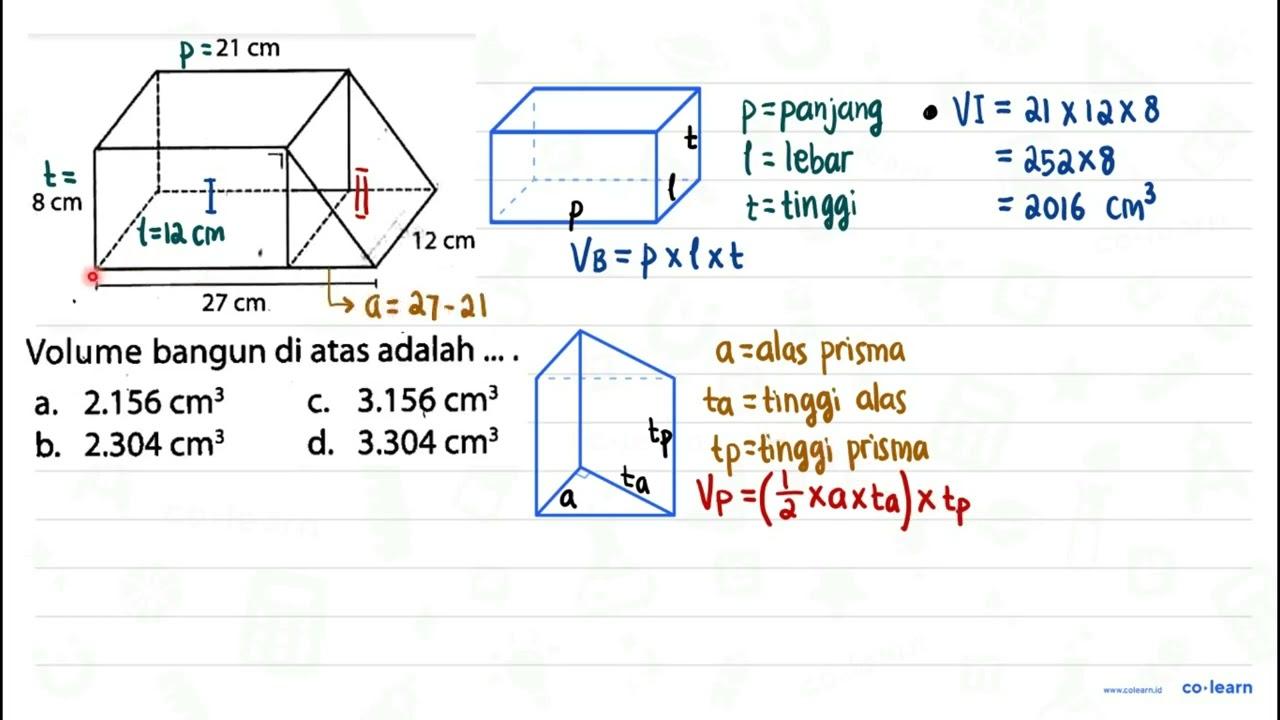 p = 21 cm
t =
8 cm
I
II
l = 12 cm
12 cm
27 cm
a = 27 - 21
Volume bangun di atas adalah ... .
a. 2.156 cm³
c. 3.156 cm³
b. 2.304 cm³
d. 3.304 cm³
t
l
p
VB = p x l x t
p = panjang
l = lebar
t = tinggi
• VI = 21 x 12 x 8
= 252 x 8
= 2016 cm³
tp
ta
a
a = alas prisma
ta = tinggi alas
tp = tinggi prisma
Vp = (1/2 x a x ta) x tp
www.colearn.id
co·learn